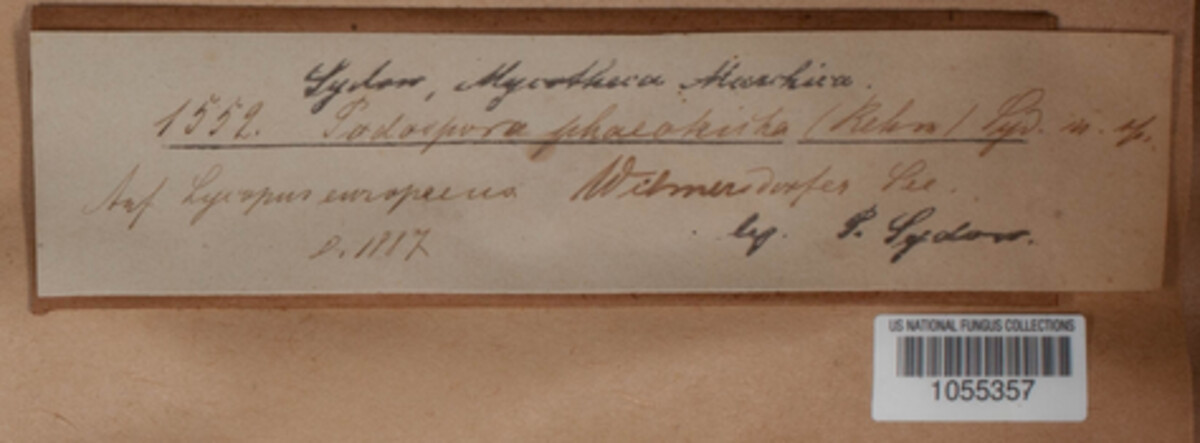 Sydow, Mycotheca Marchica.
1552. Podospora (Rehm) Syd. n. sp.
Auf Lycopus europaeus Wilmersdorfer See.
leg. P. Sydow.
1887
US NATIONAL FUNGUS COLLECTIONS
1055357